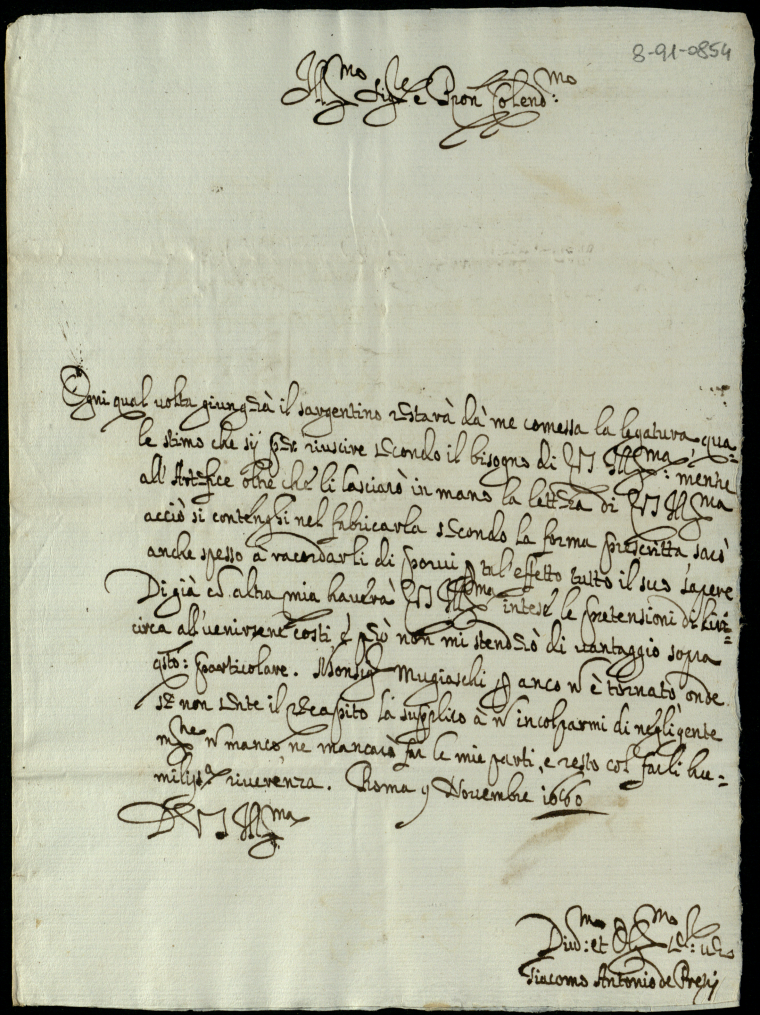 8-91-0854
Ill.mo Sig.re e Pron Colend:mo
Ogni qual uolta giungerà il sargentino restarà dà me comessa la legatura, qua=
le stimo che sij per riuscire secondo il bisogno di VS Ill.ma, mentre
all'Artefice oltre che li lasciarò in mano la lettera di VS Ill.ma
acciò si contenghi nel fabricarla secondo la forma prescritta sarò
anche spesso à racordarli di porui p tal'effetto tutto il suo sapere
Di già cō altra mia hauerà VS Ill.ma intese le pretensioni di
circa all'uenirsene costì, e però non mi stenderò di uantaggio sopra
qsto: particolare. Monsig.r Mugiaschi p anco nō è tornato onde
se non sente il recapito la supplico à nō incolparmi di negligente
m.che nō manco, ne mancarò far le mie parti, e resto col farli hu=
miliss.a riuerenza. Roma 9 Nouembre 1660
D VS Ill.ma
Diu:mo et Obl.mo se:re uero
Giacomo Antonio de Presij